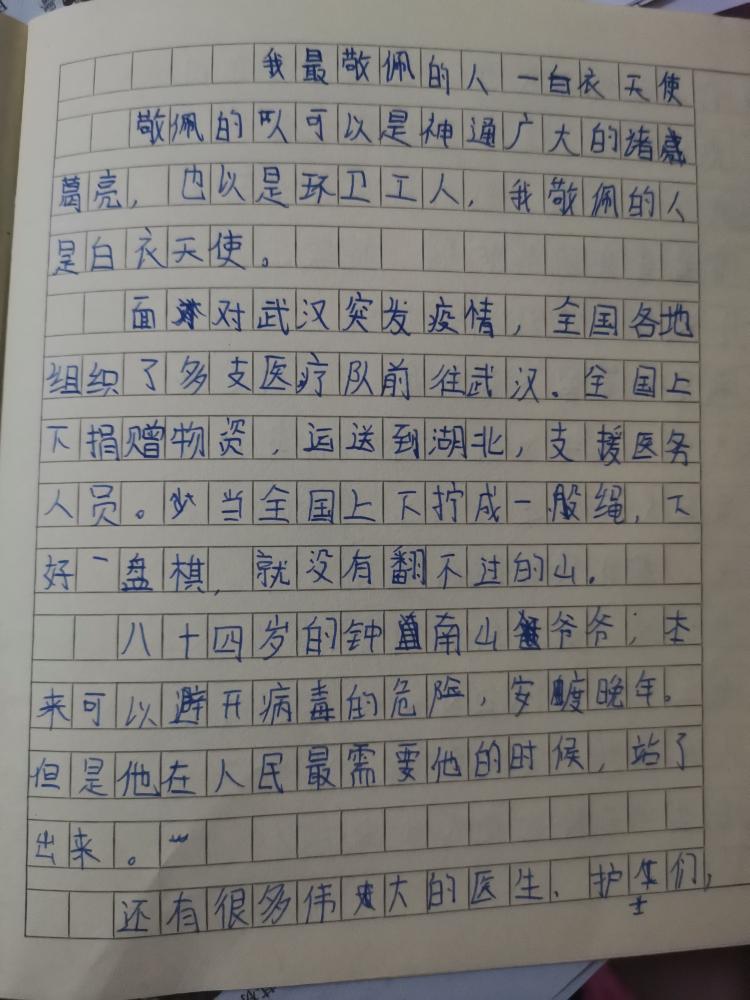 我最敬佩的人一白衣天使
敬佩的队可以是神通广大的诸
葛亮，也以是环卫工人，我敬佩的人
是白衣天使。
面对武汉突发疫情，全国各地
组织了多支医疗队前往武汉。全国上
下捐赠物资，运送到湖北，支援医务
人员。当全国上下拧成一股绳，下
好一盘棋，就没有翻不过的山。
八十四岁的钟南山爷爷，本
来可以避开病毒的危险，安度晚年。
但是他在人民最需要他的时候，站了
出来。
还有很多伟大的医生、护士们，